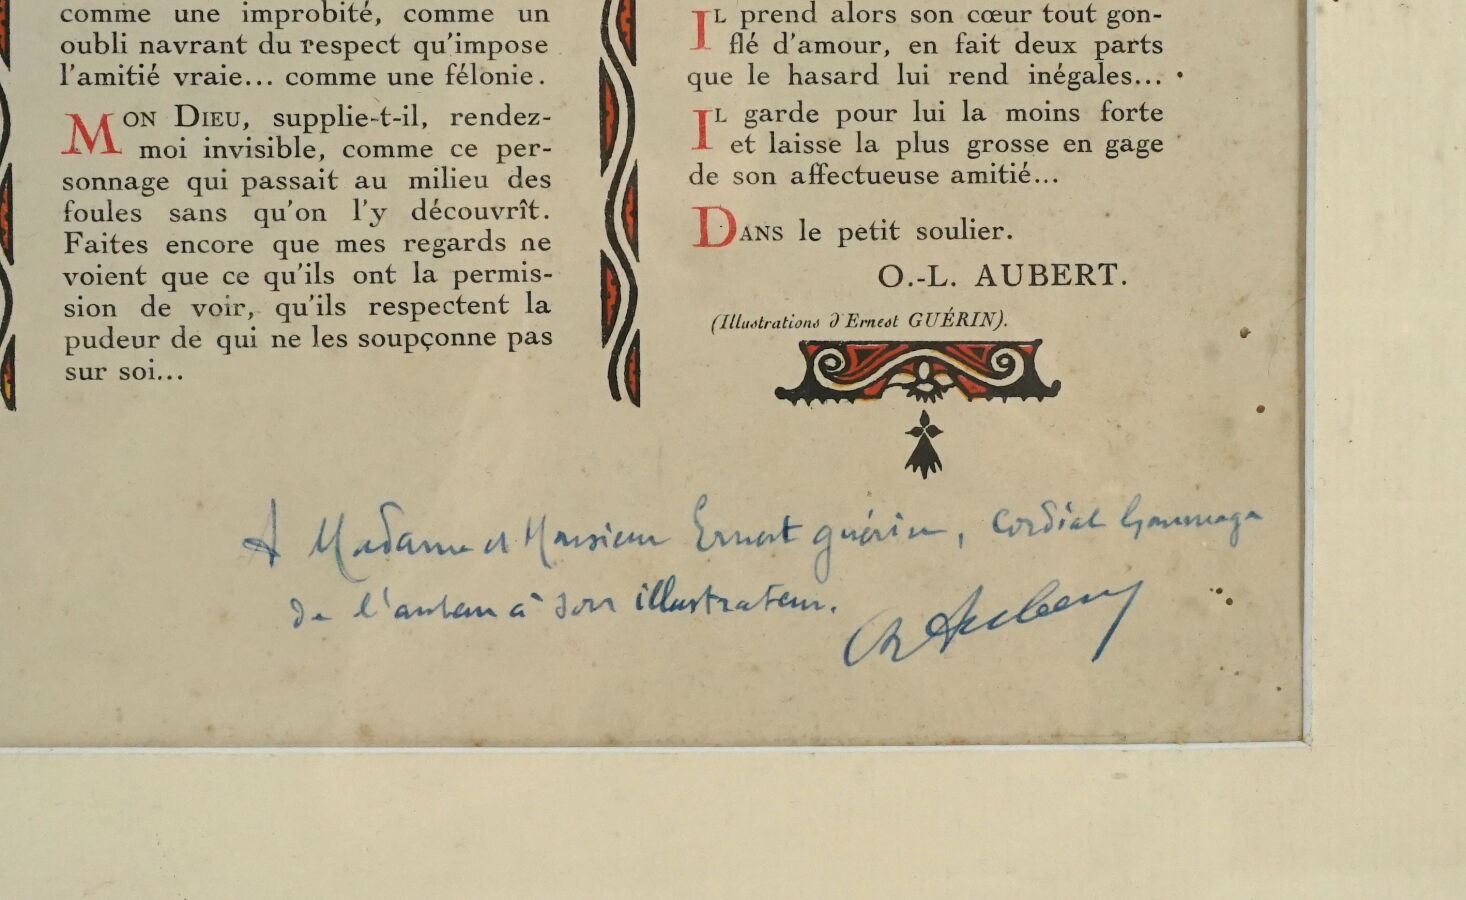 comme une improbité, comme un
oubli navrant du respect qu'impose
l'amitié vraie... comme une félonie.
MON DIEU, supplie-t-il, rendez-
moi invisible, comme ce per-
sonnage qui passait au milieu des
foules sans qu'on l'y découvrît.
Faites encore que mes regards ne
voient que ce qu'ils ont la permis-
sion de voir, qu'ils respectent la
pudeur de qui ne les soupçonne pas
sur soi...
IL prend alors son cœur tout gon-
flé d'amour, en fait deux parts
que le hasard lui rend inégales...
IL garde pour lui la moins forte
et laisse la plus grosse en gage
de son affectueuse amitié...
DANS le petit soulier.
O.-L. AUBERT.
(Illustrations d'Ernest GUÉRIN).
A Madame et Monsieur Ernest Guérin, cordial hommage
de l'auteur à son illustrateur.
OL Aubert